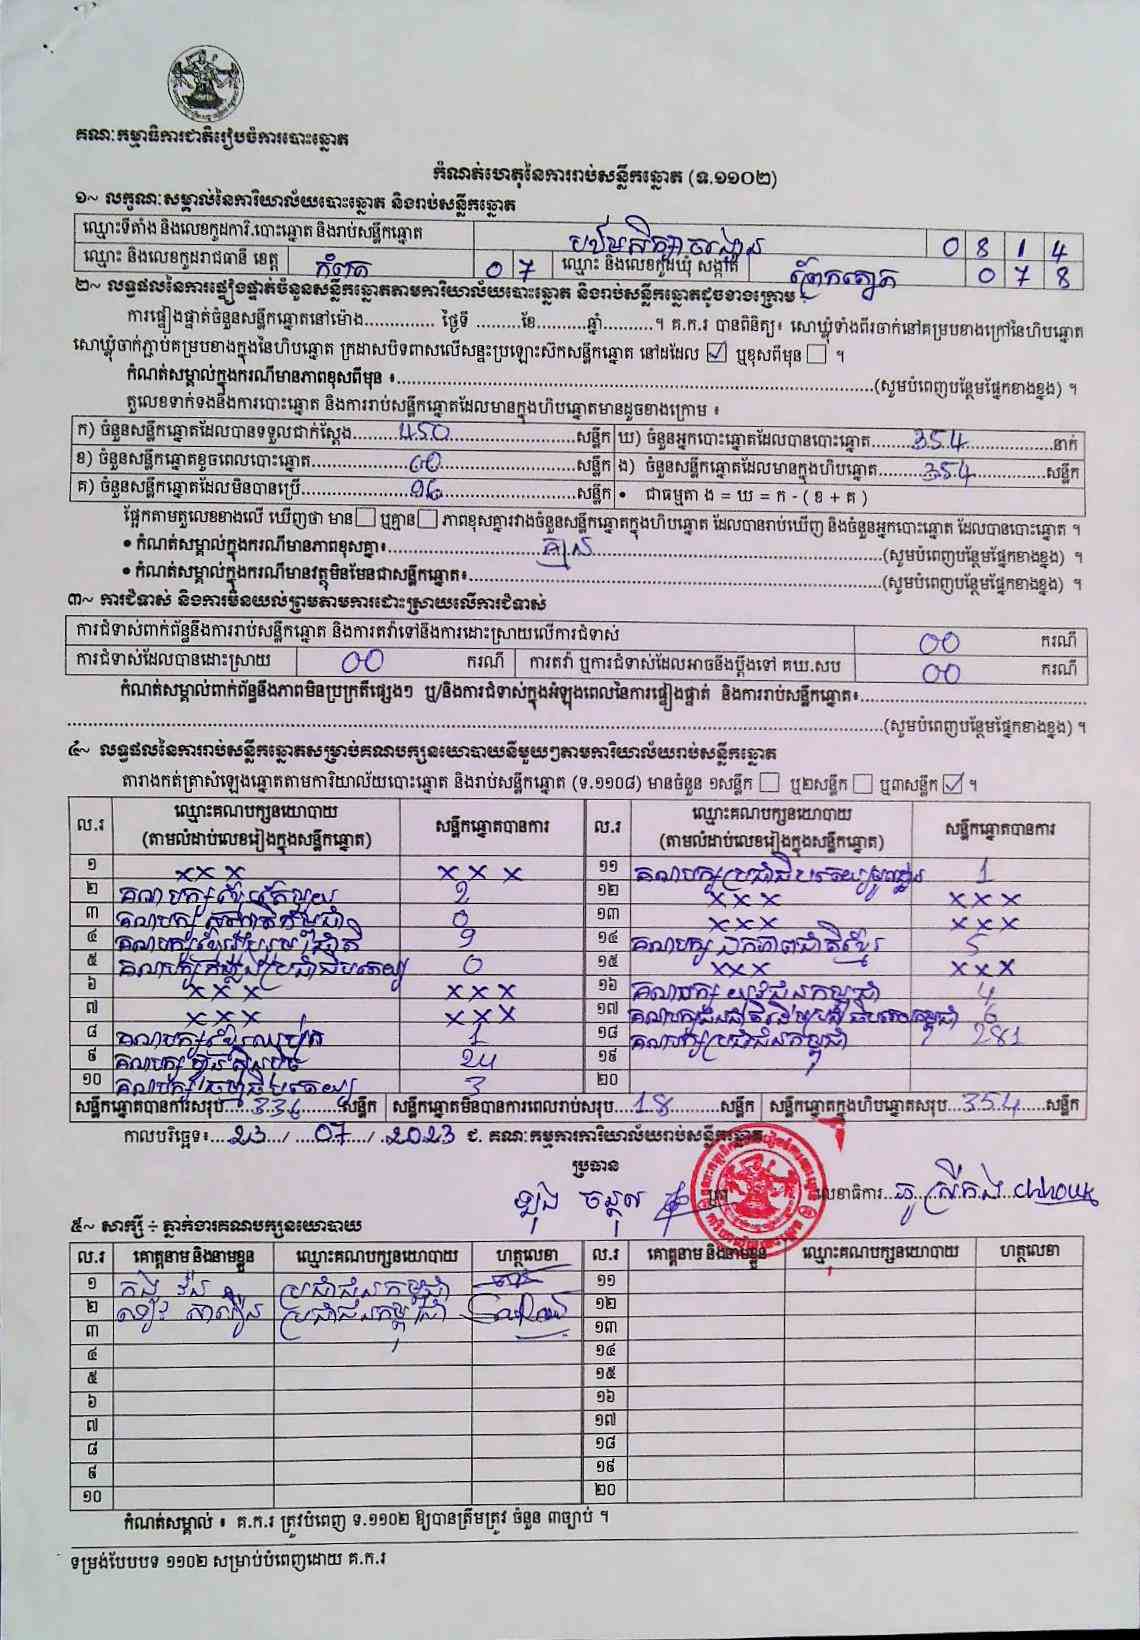 គណៈកម្មាធិការជាតិរៀបចំការបោះឆ្នោត
កំណត់ហេតុនៃការរាប់សន្លឹកឆ្នោត (ទ.១១០២)
១~ លក្ខណៈសម្គាល់នៃការិយាល័យបោះឆ្នោត និងរាប់សន្លឹកឆ្នោត
ឈ្មោះទីតាំង និងលេខកូដការិ.បោះឆ្នោត និងរាប់សន្លឹកឆ្នោត 0 8 1 4
ឈ្មោះ និងលេខកូដរាជធានី ខេត្ត កំពត 0 7 ឈ្មោះ និងលេខកូដឃុំ សង្កាត់ ព្រែកត្នោត 0 7 8
២~ លទ្ធផលនៃការផ្ទៀងផ្ទាត់ចំនួនសន្លឹកឆ្នោតតាមការិយាល័យបោះឆ្នោត និងរាប់សន្លឹកឆ្នោតដូចខាងក្រោម :
ការផ្ទៀងផ្ទាត់ចំនួនសន្លឹកឆ្នោតនៅម៉ោង.............. ថ្ងៃទី .........ខែ..........ឆ្នាំ..........។ គ.ក.រ បានពិនិត្យ៖ សោឃ្លុំទាំងពីរចាក់នៅគម្របខាងក្រៅនៃហិបឆ្នោត
សោឃ្លុំចាក់ភ្ជាប់គម្របខាងក្នុងនៃហិបឆ្នោត ក្រដាសបិទពាសលើសន្ទះប្រឡោះស៊កសន្លឹកឆ្នោត នៅដដែល ☑ ឬខុសពីមុន ☐ ។
កំណត់សម្គាល់ក្នុងករណីមានភាពខុសពីមុន ៖..........(សូមបំពេញបន្ថែមផ្នែកខាងខ្នង) ។
តួលេខទាក់ទងនឹងការបោះឆ្នោត និងការរាប់សន្លឹកឆ្នោតដែលមានក្នុងហិបឆ្នោតមានដូចខាងក្រោម ៖
ក) ចំនួនសន្លឹកឆ្នោតដែលបានទទួលជាក់ស្តែង........450........សន្លឹក ឃ) ចំនួនអ្នកបោះឆ្នោតដែលបានបោះឆ្នោត........354........នាក់
ខ) ចំនួនសន្លឹកឆ្នោតខូចពេលបោះឆ្នោត........00........សន្លឹក ង) ចំនួនសន្លឹកឆ្នោតដែលមានក្នុងហិបឆ្នោត........354........សន្លឹក
គ) ចំនួនសន្លឹកឆ្នោតដែលមិនបានប្រើ........96........សន្លឹក • ជាធម្មតា ង = ឃ = ក - ( ខ + គ )
ផ្អែកតាមតួលេខខាងលើ ឃើញថា មាន ☐ ឬគ្មាន ☐ ភាពខុសគ្នារវាងចំនួនសន្លឹកឆ្នោតក្នុងហិបឆ្នោត ដែលបានរាប់ឃើញ និងចំនួនអ្នកបោះឆ្នោត ដែលបានបោះឆ្នោត ។
• កំណត់សម្គាល់ក្នុងករណីមានភាពខុសគ្នា៖........គ្មាន........(សូមបំពេញបន្ថែមផ្នែកខាងខ្នង) ។
• កំណត់សម្គាល់ក្នុងករណីមានវត្ថុមិនមែនជាសន្លឹកឆ្នោត៖........(សូមបំពេញបន្ថែមផ្នែកខាងខ្នង) ។
៣~ ការជំទាស់ និងការមិនយល់ព្រមតាមការដោះស្រាយលើការជំទាស់
ការជំទាស់ពាក់ព័ន្ធនឹងការរាប់សន្លឹកឆ្នោត និងការតវ៉ាទៅនឹងការដោះស្រាយលើការជំទាស់ 00 ករណី
ការជំទាស់ដែលបានដោះស្រាយ 00 ករណី ការតវ៉ា ឬការជំទាស់ដែលអាចនឹងប្តឹងទៅ គឃ.សប 00 ករណី
កំណត់សម្គាល់ពាក់ព័ន្ធនឹងភាពមិនប្រក្រតីផ្សេងៗ ឬ/និងការជំទាស់ក្នុងអំឡុងពេលនៃការផ្ទៀងផ្ទាត់ និងការរាប់សន្លឹកឆ្នោត៖..........
..........(សូមបំពេញបន្ថែមផ្នែកខាងខ្នង) ។
៤~ លទ្ធផលនៃការរាប់សន្លឹកឆ្នោតសម្រាប់គណបក្សនយោបាយនីមួយៗតាមការិយាល័យរាប់សន្លឹកឆ្នោត
តារាងកត់ត្រាសំឡេងឆ្នោតតាមការិយាល័យបោះឆ្នោត និងរាប់សន្លឹកឆ្នោត (ទ.១១០៨) មានចំនួន ១សន្លឹក ☐ ឬ២សន្លឹក ☐ ឬ៣សន្លឹក ☑ ។
ល.រ ឈ្មោះគណបក្សនយោបាយ (តាមលំដាប់លេខរៀងក្នុងសន្លឹកឆ្នោត) សន្លឹកឆ្នោតបានការ ល.រ ឈ្មោះគណបក្សនយោបាយ (តាមលំដាប់លេខរៀងក្នុងសន្លឹកឆ្នោត) សន្លឹកឆ្នោតបានការ
១ x x x x x x ១១ គណបក្សប្រជាធិបតេយ្យមូលដ្ឋាន 1
២ 2 ១២ x x x x x x
៣ 0 ១៣ x x x x x x
៤ គណបក្សខ្មែររួបរួមជាតិ 9 ១៤ គណបក្សឯកភាពជាតិខ្មែរ 5
៥ គណបក្សសំឡេងប្រជាធិបតេយ្យ 0 ១៥ x x x x x x
៦ x x x x x x ១៦ គណបក្សយុវជនកម្ពុជា 4
៧ x x x x x x ១៧ គណបក្សជនជាតិដើមប្រជាធិបតេយ្យកម្ពុជា 6
៨ 1 ១៨ គណបក្សប្រជាជនកម្ពុជា 281
៩ គណបក្សហ៊្វុនស៊ិនប៉ិច 24 ១៩
១០ គណបក្សធម្មាធិបតេយ្យ 3 ២០
សន្លឹកឆ្នោតបានការសរុប...336...សន្លឹក សន្លឹកឆ្នោតមិនបានការពេលរាប់សរុប...18...សន្លឹក សន្លឹកឆ្នោតក្នុងហិបឆ្នោតសរុប...354...សន្លឹក
កាលបរិច្ឆេទ៖...23.../...07.../...2023 ជ. គណៈកម្មការការិយាល័យរាប់សន្លឹកឆ្នោត
ប្រធាន
លេខាធិការ chhouk
៥~ សាក្សី ÷ ភ្នាក់ងារគណបក្សនយោបាយ
ល.រ គោត្តនាម និងនាមខ្លួន ឈ្មោះគណបក្សនយោបាយ ហត្ថលេខា ល.រ គោត្តនាម និងនាមខ្លួន ឈ្មោះគណបក្សនយោបាយ ហត្ថលេខា
១ ប្រជាជនកម្ពុជា ១១
២ ប្រជាជនកម្ពុជា ១២
៣ ១៣
៤ ១៤
៥ ១៥
៦ ១៦
៧ ១៧
៨ ១៨
៩ ១៩
១០ ២០
កំណត់សម្គាល់ ៖ គ.ក.រ ត្រូវបំពេញ ទ.១១០២ ឱ្យបានត្រឹមត្រូវ ចំនួន ៣ច្បាប់ ។
ទម្រង់បែបបទ ១១០២ សម្រាប់បំពេញដោយ គ.ក.រ